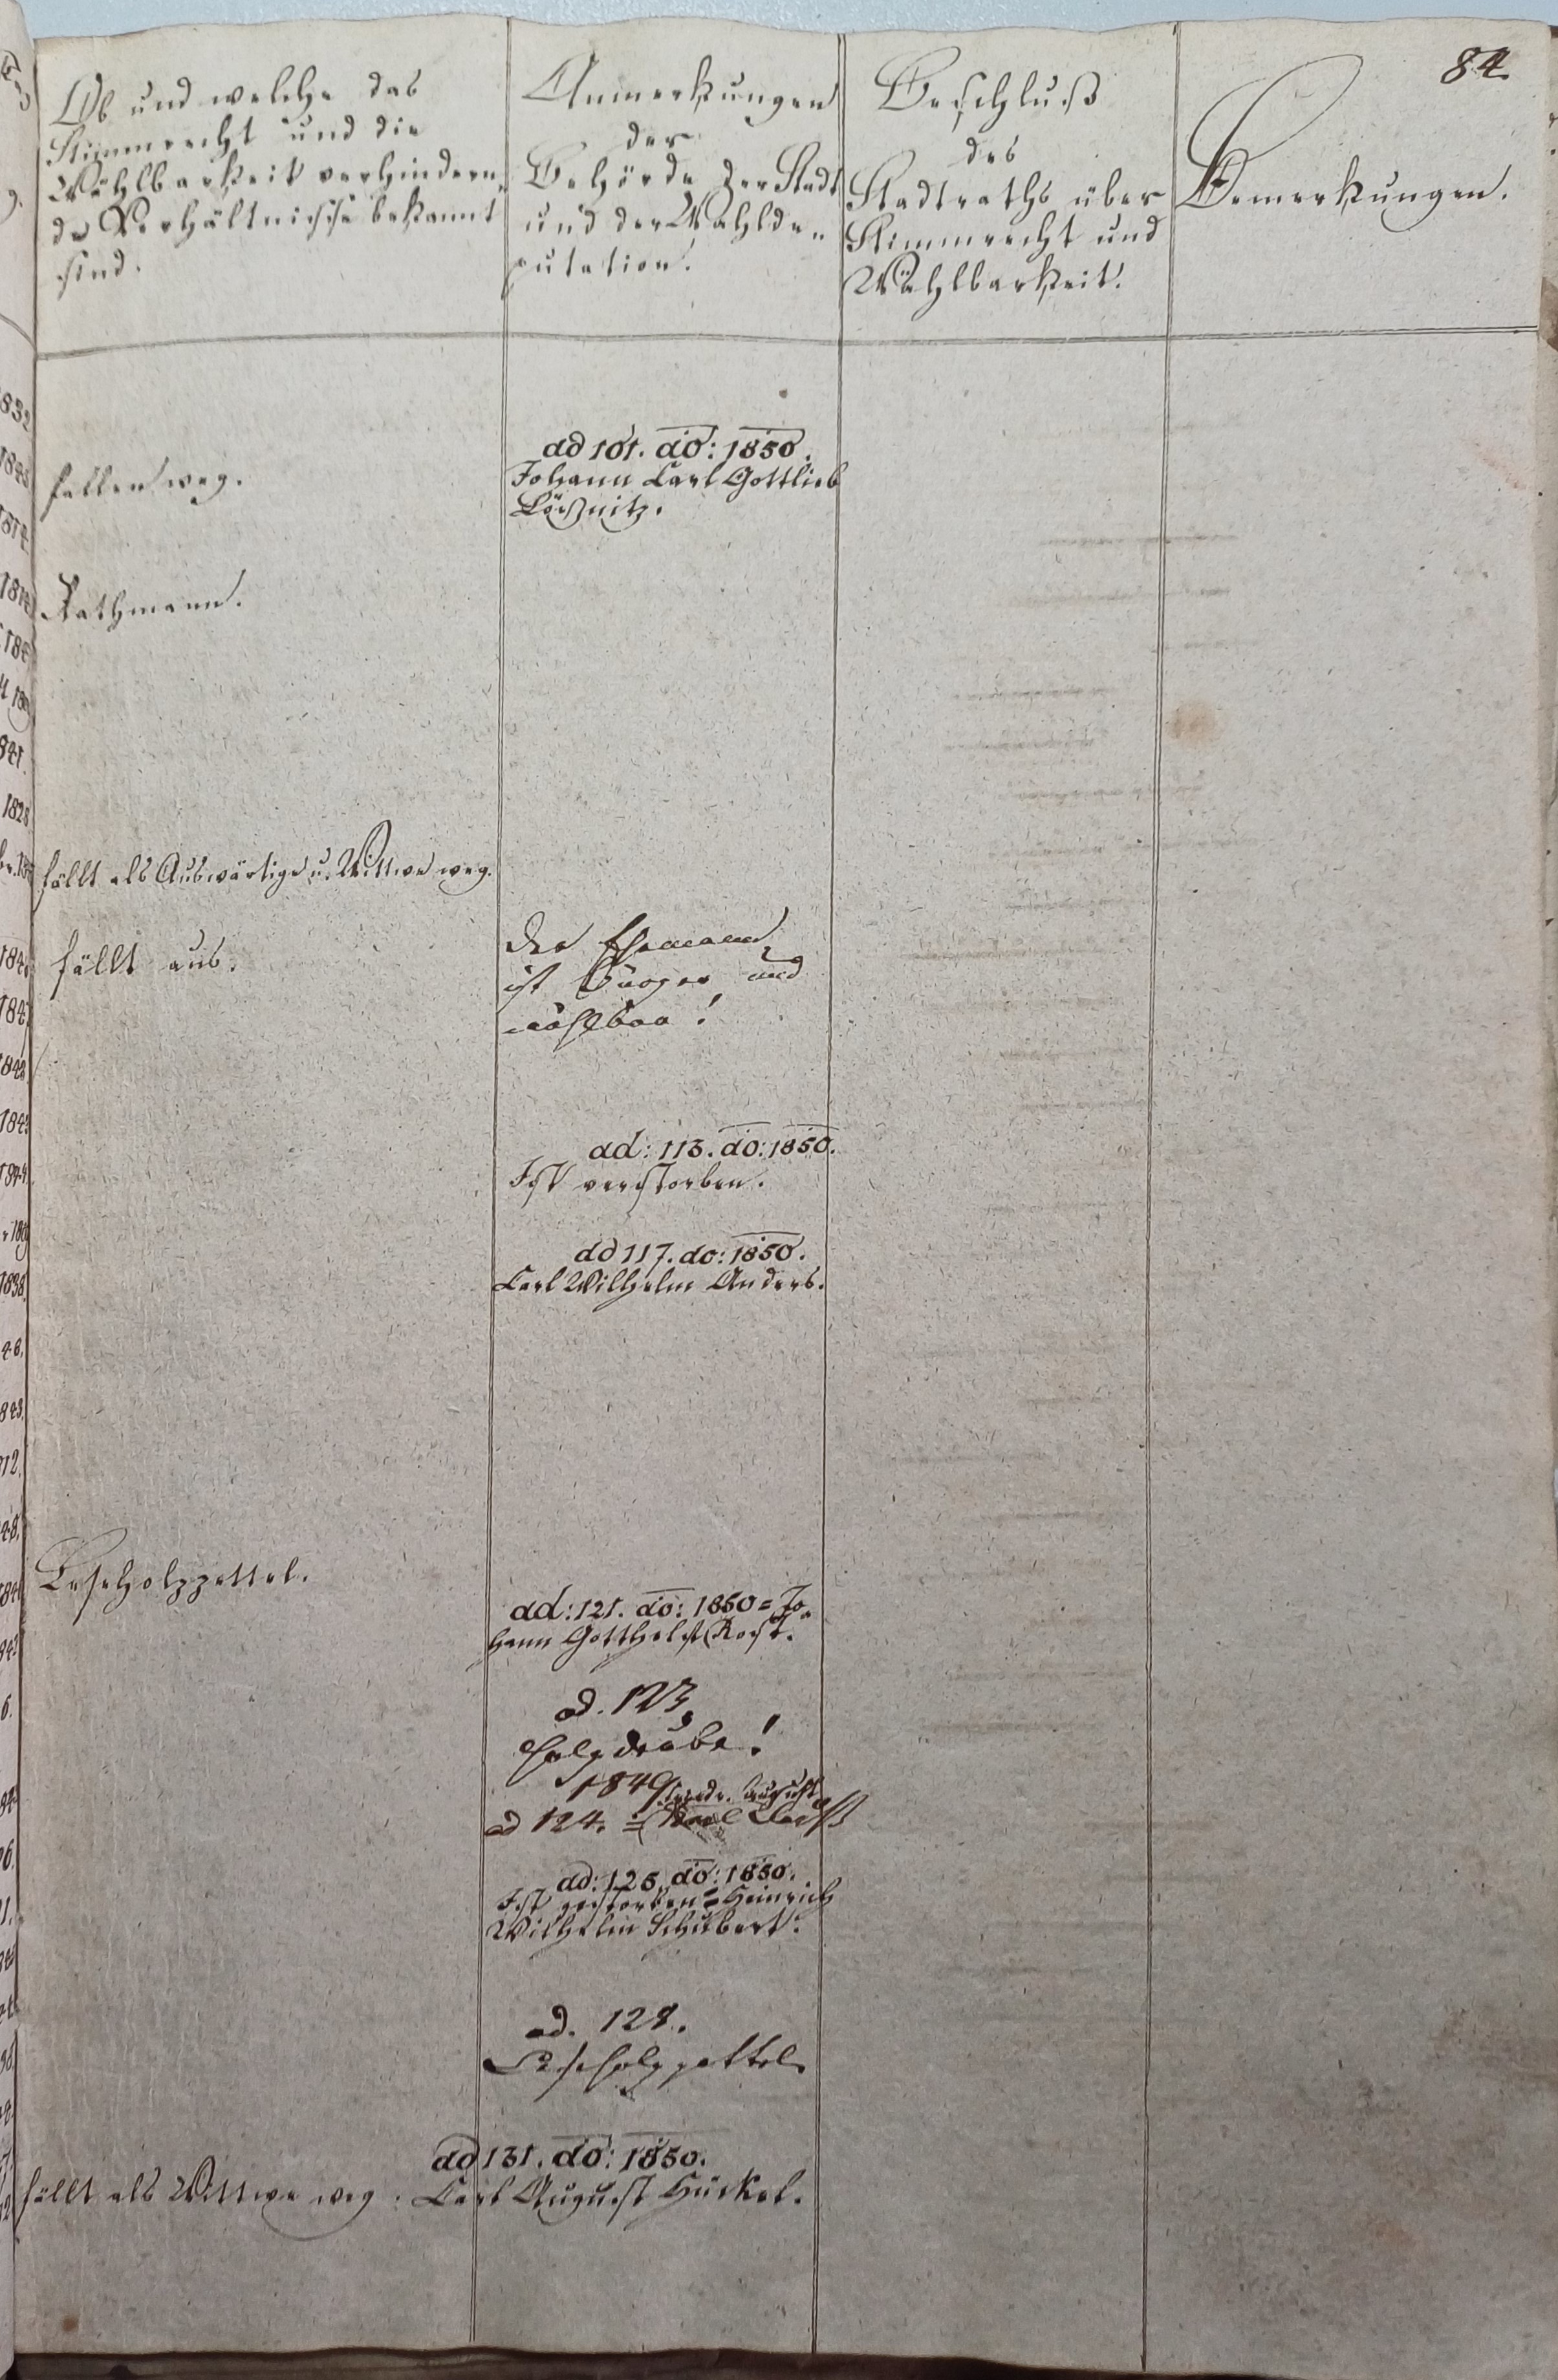 84.
Ob und welche das
Stimmrecht und die
Wählbarkeit verhindern-
de Verhältnisse bekannt
sind.
Anmerkungen
der
Behörde der Stadt
und der Wahlde-
putation.
Beschluß
des
Stadtraths über
Stimmrecht und
Wählbarkeit.
Bemerkungen.
ad 101. do: 1850.
Johann Carl Gottlieb
Lößnitz.
fallen weg.
Rathmann.
fällt als Auswärtige u. Wittwe weg.
fällt aus.
Der Ehemann
ist Bürger und
wählbar!
ad: 113. do: 1850.
Ist verstorben.
ad 117. do: 1850.
Carl Wilhelm Anders.
Leseholzzettel.
ad: 121. do: 1850 = Jo-
hann Gotthelf
ad. 123.
1849
ad 124. =
ad: 126. do: 1850.
Ist verstorben = Heinrich
Wilhelm Schubert.
ad. 128.
Leseholzzettel.
ad 131. do: 1850.
fällt als Wittwe weg. Carl August Hückel.